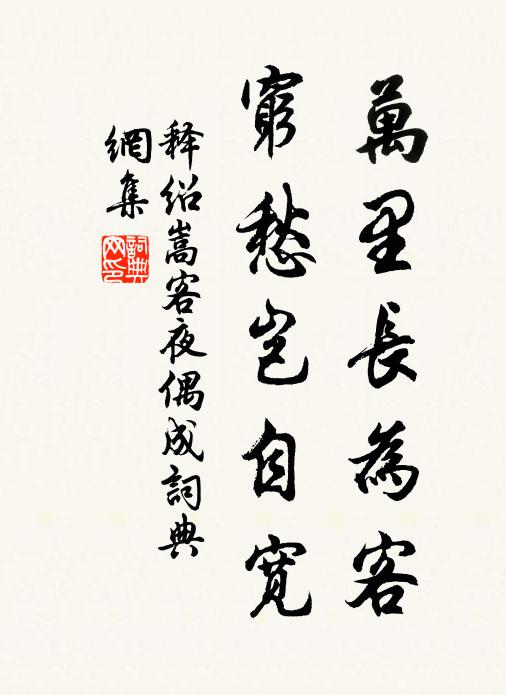 萬里長為客
窮愁豈自寬
释绍嵩客夜偶成詞典
網集
詞典
网印